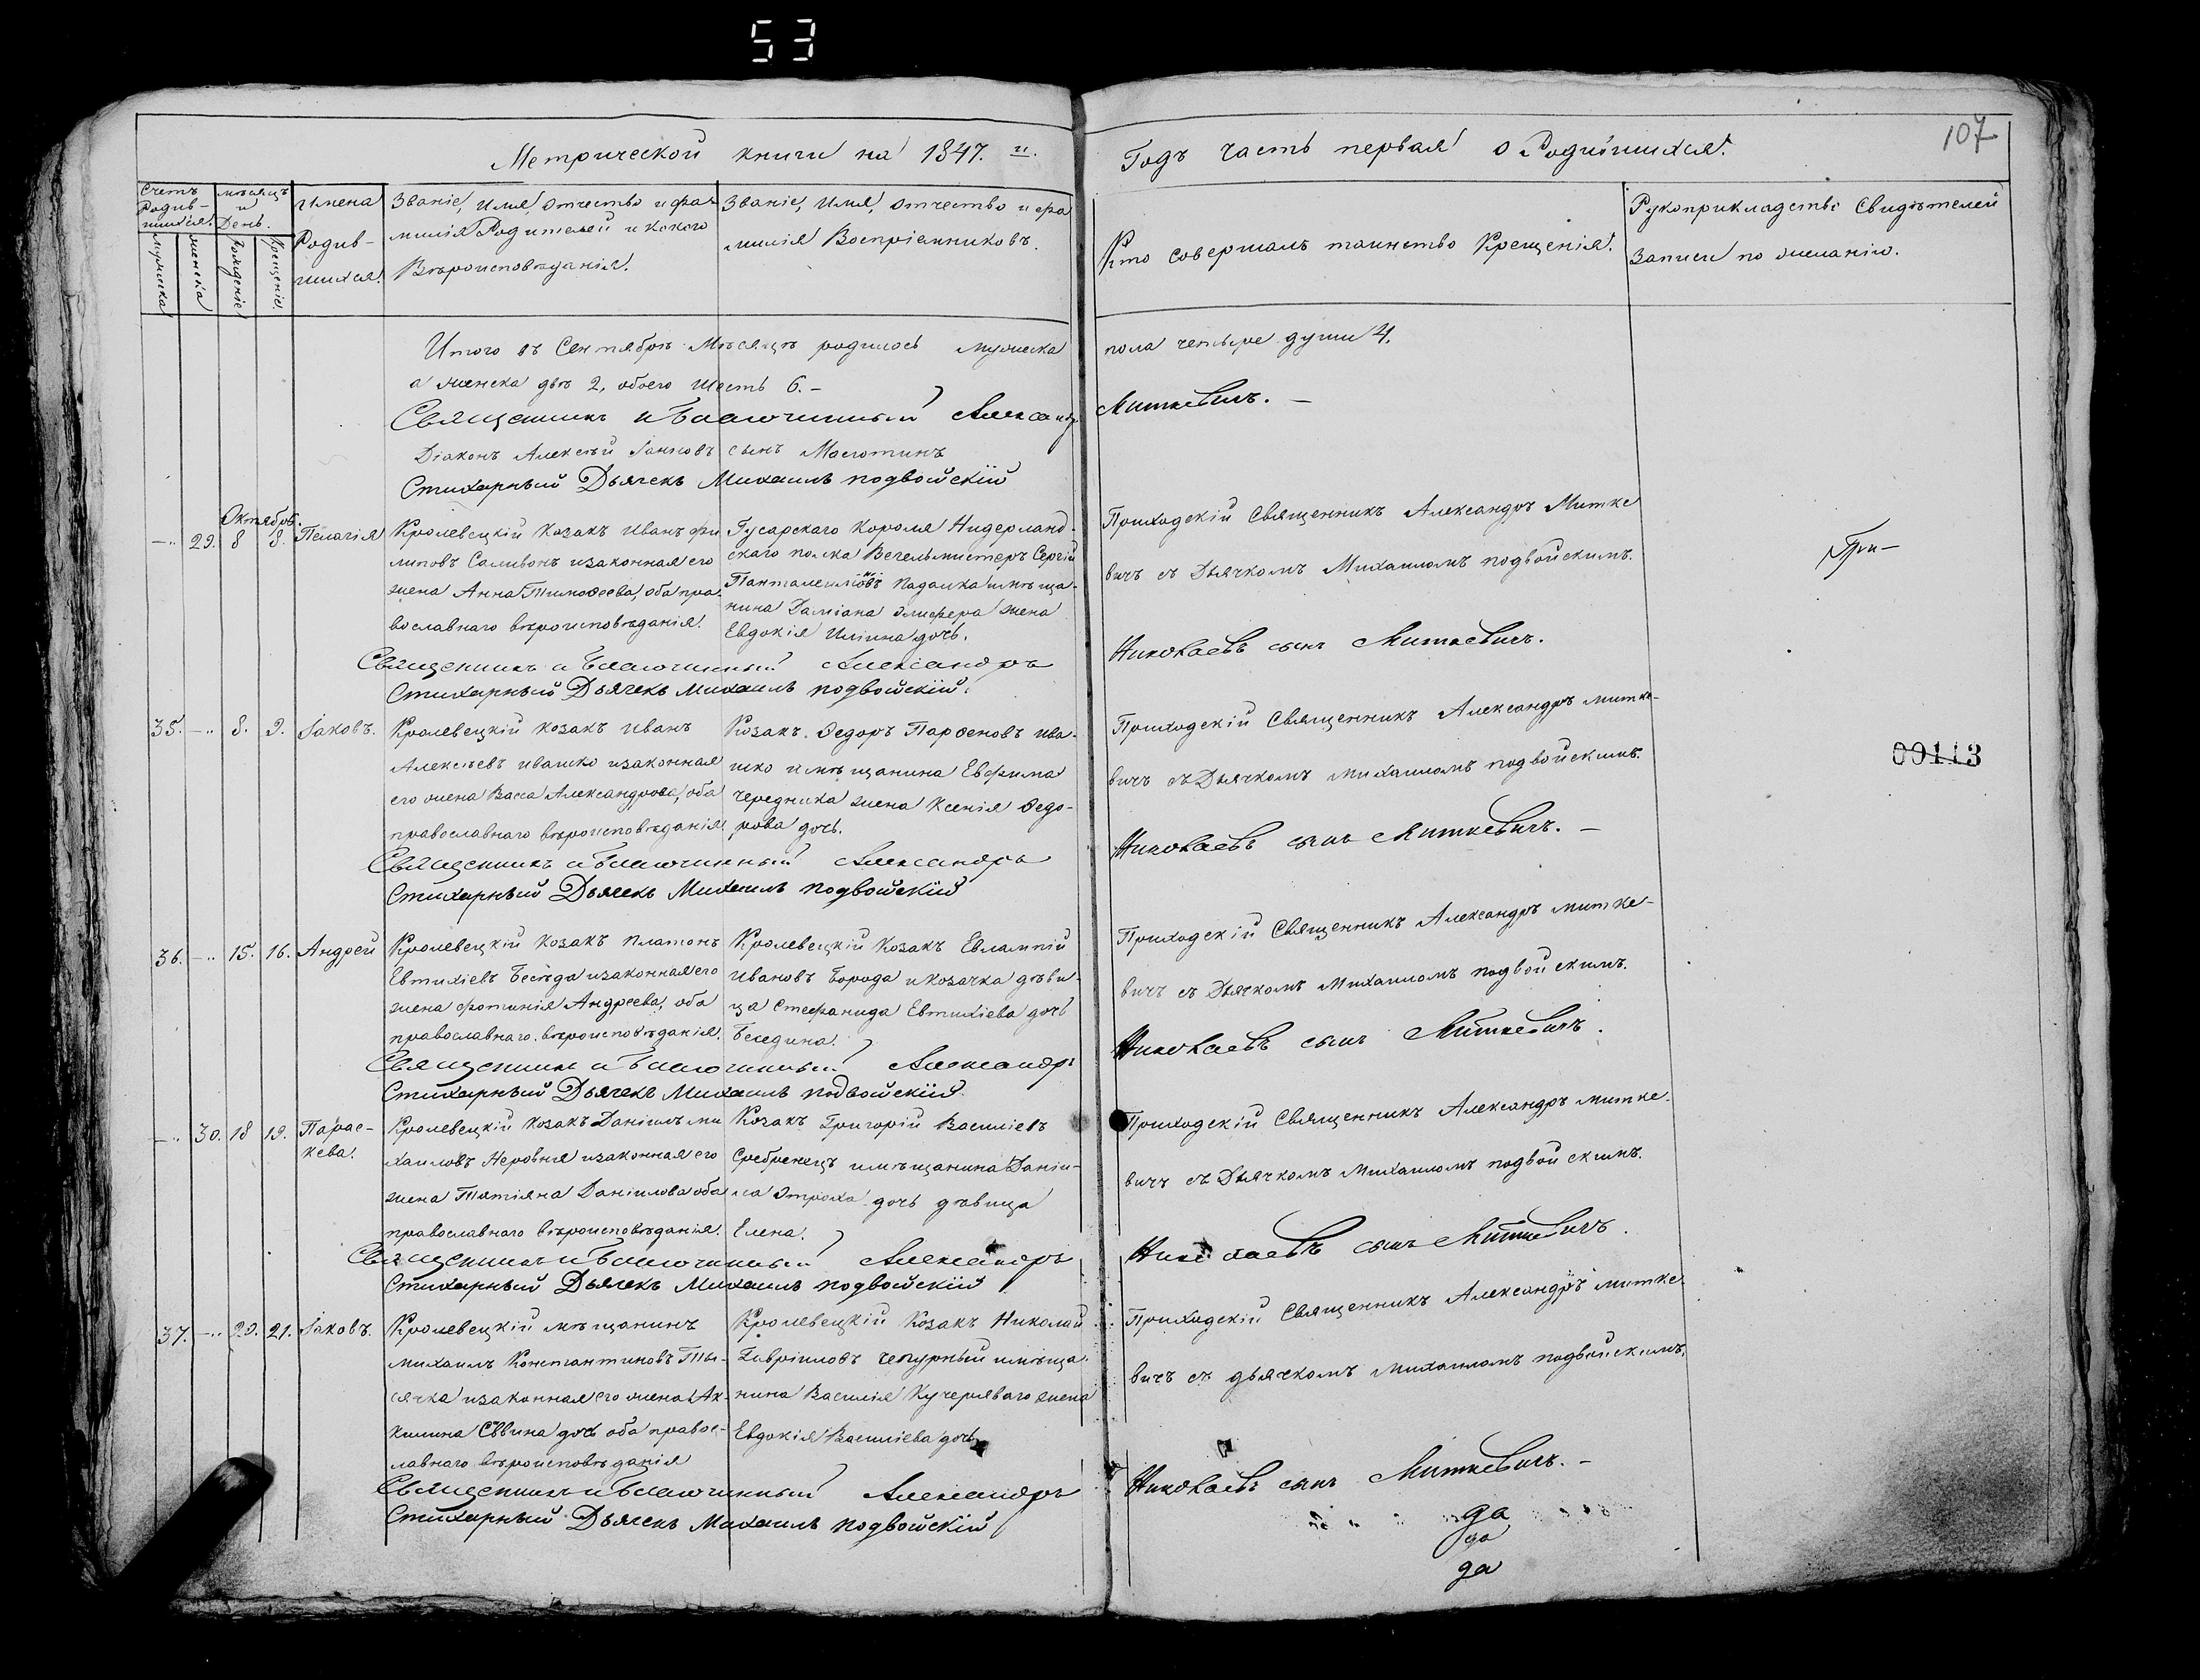 53
107
Метрической книги на 1847. й. Годъ часть первая о Родившихся.
Счетъ Родив-шихся.
мужеска
женска
мѣсяцъ и День.
рожденіе
крещеніе
Имена Родив-шихся.
Званіе, Имя, отчество и фа-
милія Родителей и какого
Вѣроисповѣданія.
Званіе, Имя, отчество и фа
милія Воспріемниковъ.
Кто совершалъ таинство Крещенія.
Рукоприкладство Свидѣтелей
Записи по желанію.
Итого въ Сентябрѣ Мѣсяцѣ родилось мужеска пола четыре души 4,
а женска двѣ 2, обоего шесть 6.-
Священникъ и Благочинный Александръ Миткевичъ. -
Діаконъ Алексѣй Іаковъ сынъ
Стихарный Дьячекъ Михаилъ подвойскій
Октябрь.
-.. 29. 8 8. Пелагія
Кролевецкій Козакъ Иванъ фи
липовъ Саливонъ изаконная его
жена Анна Тимоѳеева, оба пра-
вославнаго вѣроисповѣданія.
Гусарскаго Короля Нидерланд-
скаго полка Сергій
Панталеимоновъ имѣща-
нина Даміана жена
Евдокія дочь.
Приходскій Священникъ Александръ Митке
вичъ съ Дьячкомъ Михаиломъ подвойскимъ.
Священникъ и Благочинный Александръ Николаевъ сынъ Миткевичъ.
Стихарный Дьячекъ Михаилъ подвойскій.
35. -.. 8. 9. Іаковъ.
Кролевецкій козакъ Иванъ
Алексѣевъ ивашко изаконная
его жена Васса Александрова, оба
православнаго вѣроисповѣданія.
Козакъ. Ѳедоръ Парѳеновъ ива-
шко имѣщанина Евфима
чередника жена Ксенія Ѳедо-
рова дочь.
Приходскій Священникъ Александръ митке-
вичъ съ Дьячкомъ михаиломъ подвойскимъ.
00113
Священникъ и Благочинный Александръ Николаевъ сынъ Миткевичъ. -
Стихарный Дьячекъ Михаилъ подвойскій
36. -.. 15. 16. Андрей
Кролевецкій козакъ платонъ
Евтихіевъ Бесѣда изаконная его
жена фотинія Андреева, оба
православнаго. вѣроисповѣданія.
Кролевецкій Козакъ Евлампій
Ивановъ Борода и козачка дѣви-
ца Стефанида Евтихіева дочь
Беседина.
Приходскій Священникъ Александръ митке-
вичъ съ Дьячкомъ Михаиломъ подвойскимъ.
Священникъ и Благочинный Александръ Николаевъ сынъ Миткевичъ.
Стихарный Дьячекъ Михаилъ подвойскій.
-.. 30. 18 19. Парас-
кева.
Кролевецкій козакъ Даніилъ ми
хаиловъ Неровня изаконная его
жена Татіяна Даніилова оба
православнаго вѣроисповѣданія.
Козакъ Григорій Василіевъ
Сребренецъ имѣщанина Даніи-
ла дочь дѣвица
Елена.
Приходскій Священникъ Александръ митке-
вичъ съ Дьячкомъ Михаиломъ подвойскимъ.
Священникъ и Благочинный Александръ Николаевъ сынъ Миткевичъ.
Стихарный Дьячекъ Михаилъ подвойскій
37. -.. 20. 21. Іаковъ.
Кролевецкій мѣщанинъ
михаилъ Константиновъ Ты-
сячка изаконная его жена Ак-
килина Саввина дочь оба правос-
лавнаго вѣроисповѣданія
Кролевецкій Козакъ Николай
Гавріиловъ Чепурный имѣща-
нина Василія Кучеряваго жена
Евдокія Василіева дочь
Приходскій Священникъ Александръ митке-
вичъ съ дьячкомъ михаиломъ подвойскимъ.
Священникъ и Благочинный Александръ Николаевъ сынъ Миткевичъ. -
Стихарный Дьячекъ Михаилъ подвойскій
да
да
да